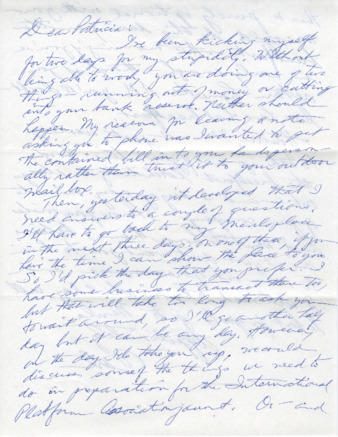 Dear Patricia:
I've been kicking myself
for two days for my stupidity. Without
being able to you as doing one of two
things - running out of money or cutting
into your bank reserve. Neither should
happen. My reason for leaving a note
asking you to phone was I wanted to get
the combined bill to you person-
ally rather than trust it to your outdoor
mail box.
Then, yesterday it developed that I
need answers to a couple of questions.
I'll have to go back to my place
in the next three days, on one of them, if you
have the time I can show the place to you
So, I'd pick the day that you prefer. I
have some business to transact there too,
but that will take too long to ask you
to wait around, so I'll go another day
day but it can be any day. However
on the day I do take you up, we could
discuss some of the things we need to
do in preparation for the International
Platform Association jaunt. Or - and